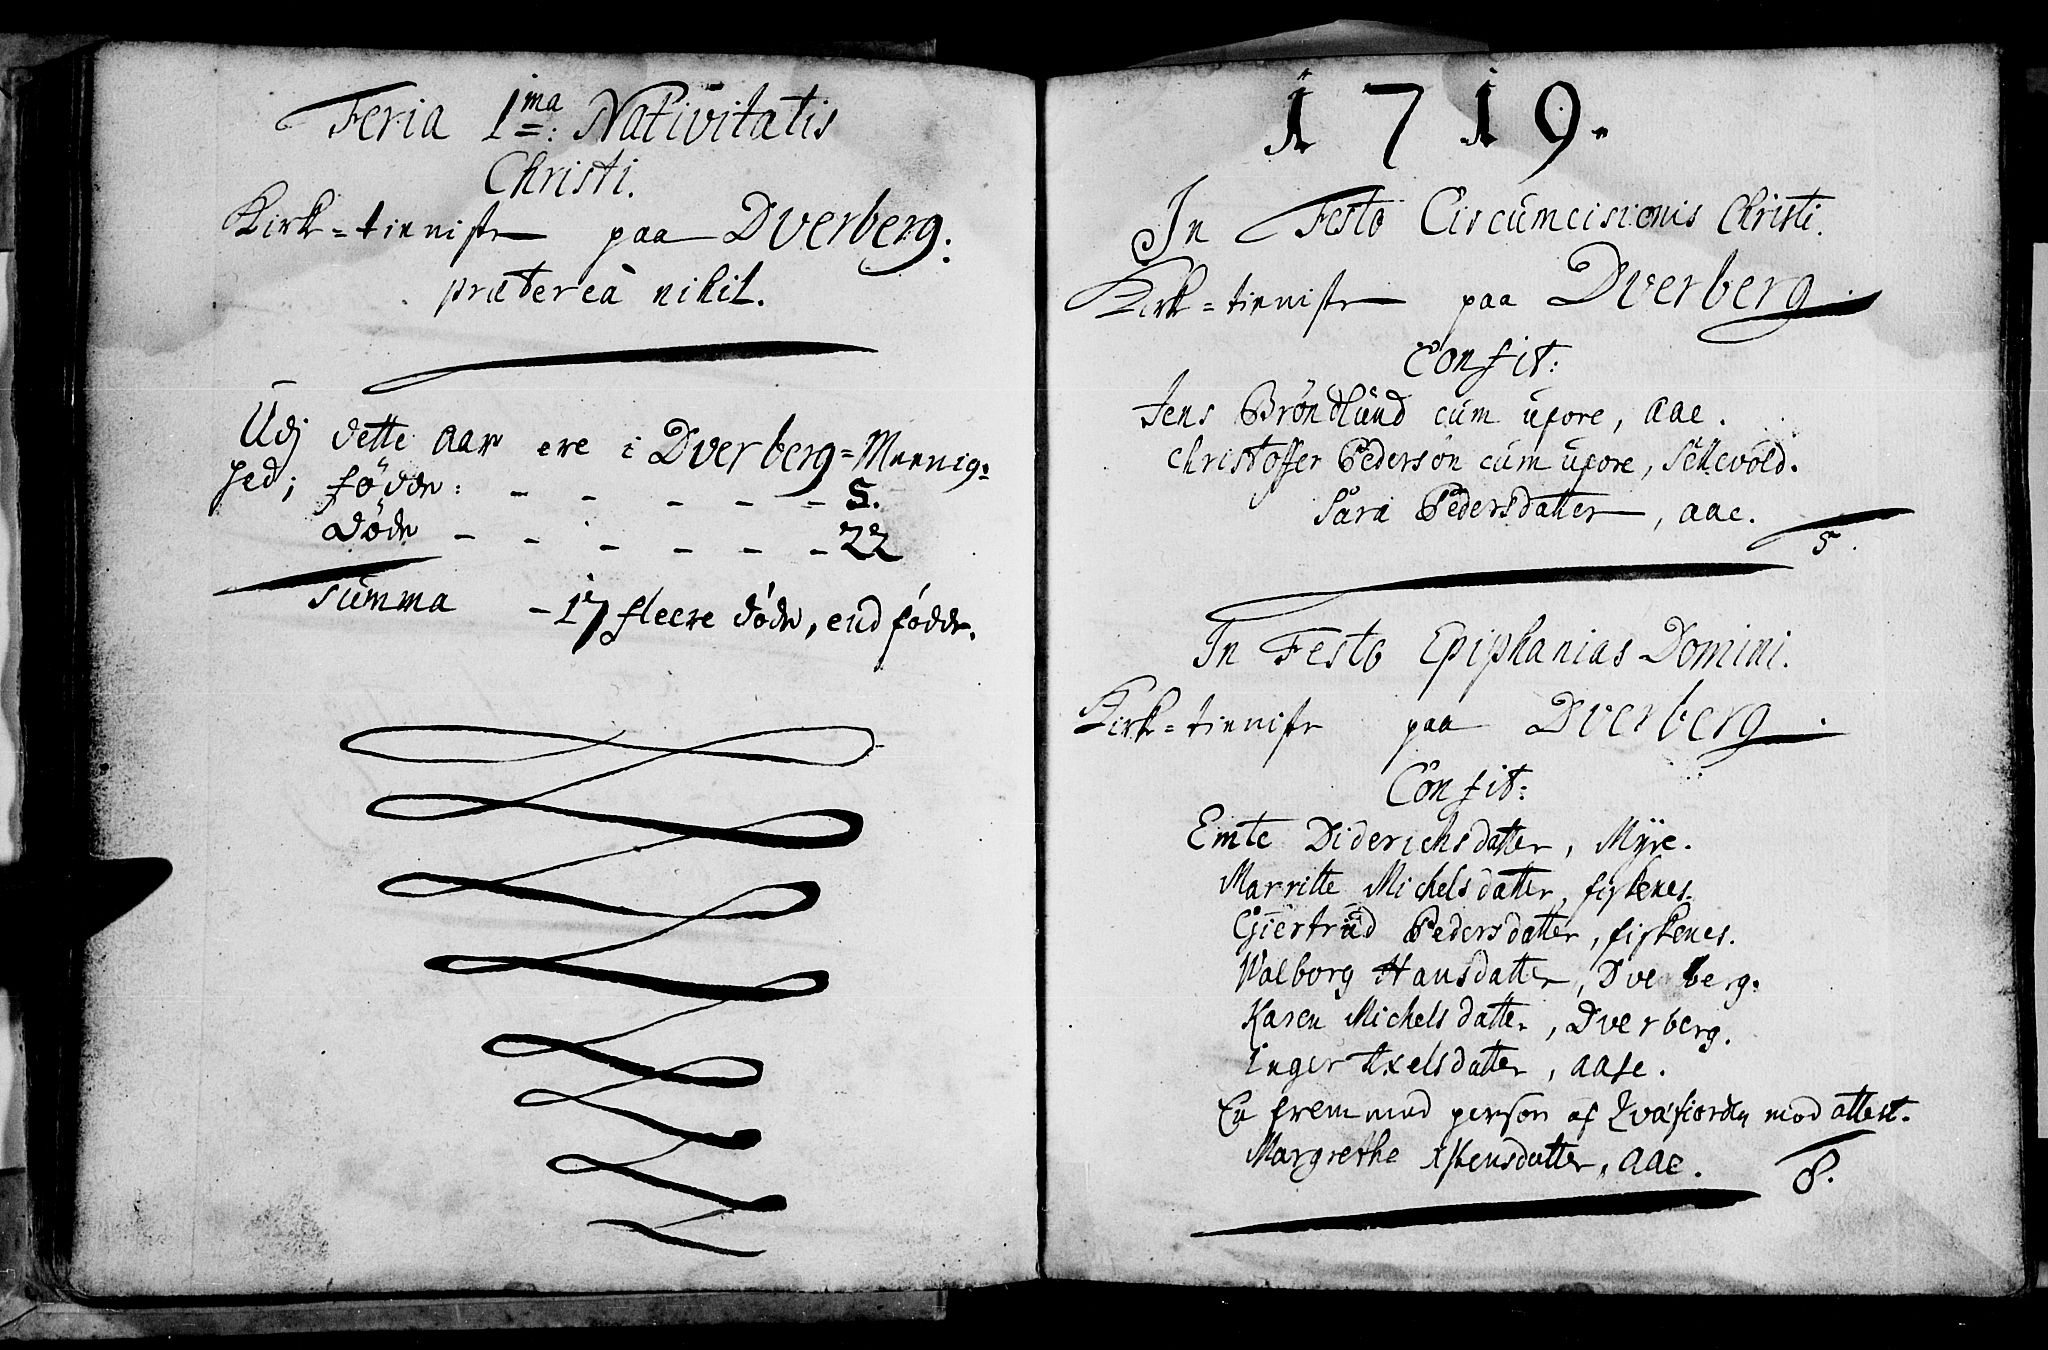 Feria 1ma: Nativitatis
Christi.
Kirk=tienniste paa Dverberg.
præterea nihil.
Udj dette aar ere i Dverberg=Meenig=
hed; fødde: - - - - - 5.
Døde - - - - - - 22
Summa - 17 fleere døde, end fødde.
1719.
In Festo Circumcisionis Christi.
Kirk=tienniste paa Dverberg.
Confit:
Jens Brøndlund cum uxore, aae.
Christoffer Pedersøn cum uxore, Sellevold.
Sara Pedersdatter, aae.
5.
In Festo Epiphanias Domini.
Kirk=tienniste paa Dverberg.
Confit:
Emte Diderichsdatter, Myre.
Marritte Michelsdatter, fiskenes.
Giertrud Pedersdatter, fiskenes.
Wolborg Hansdatter, Dverberg.
Karen Michelsdatter, Dverberg.
Inger Axelsdatter, aase.
En fremmed person af Qvæfiorden med attest.
Margrethe datter, aae.
8.